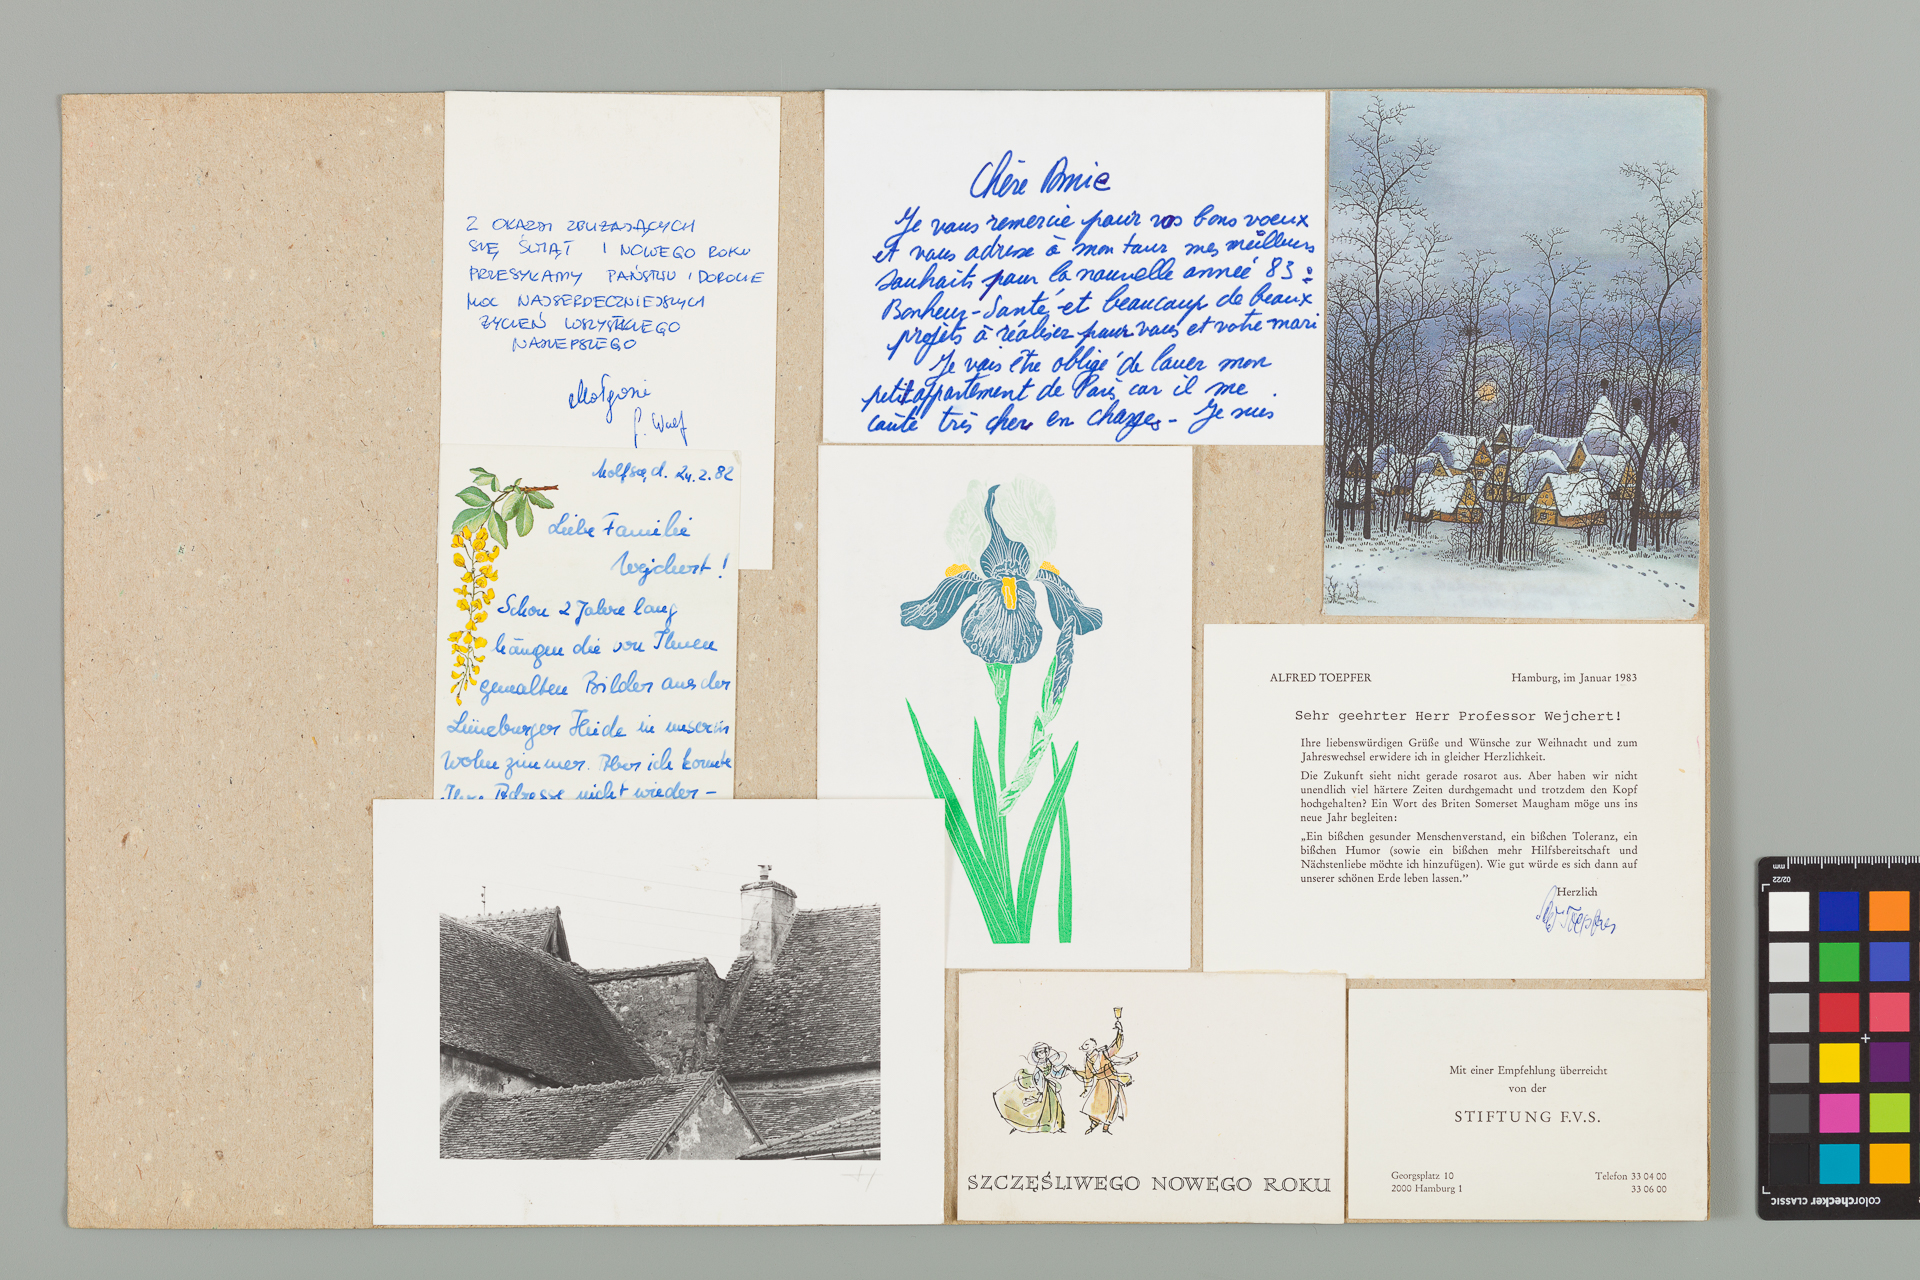 Z OKAZJI ZBLIŻAJĄCYCH
SIĘ ŚWIĄT I NOWEGO ROKU
PRZESYŁAMY PAŃSTWU I DOROCIE
MOC NAJSERDECZNIEJSZYCH
ŻYCZEŃ WSZYSTKIEGO
NAJLEPSZEGO
Chère Amie
Je vous remercie pour vos bons voeux
et vous adresse à mon tour mes meilleurs
souhaits pour la nouvelle année 83 :
Bonheur - Santé et beaucoup de beaux
projets à réaliser pour vous et votre mari
Je vais être obligé de louer mon
petit appartement de Paris car il me
coûte très cher en charges - Je suis
d. 24.2.82
Liebe Familie
Wejchert!
Schon 2 Jahre lang
hängen die von Ihnen
gemalten Bilder aus der
Lüneburger Heide in unserem
Wohnzimmer. Aber ich konnte
Ihre Adresse nicht wieder-
ALFRED TOEPFER
Hamburg, im Januar 1983
Sehr geehrter Herr Professor Wejchert!
Ihre liebenswürdigen Grüße und Wünsche zur Weihnacht und zum
Jahreswechsel erwidere ich in gleicher Herzlichkeit.
Die Zukunft sieht nicht gerade rosarot aus. Aber haben wir nicht
unendlich viel härtere Zeiten durchgemacht und trotzdem den Kopf
hochgehalten? Ein Wort des Briten Somerset Maugham möge uns ins
neue Jahr begleiten:
„Ein bißchen gesunder Menschenverstand, ein bißchen Toleranz, ein
bißchen Humor (sowie ein bißchen mehr Hilfsbereitschaft und
Nächstenliebe möchte ich hinzufügen). Wie gut würde es sich dann auf
unserer schönen Erde leben lassen.”
Herzlich
SZCZĘŚLIWEGO NOWEGO ROKU
Mit einer Empfehlung überreicht
von der
STIFTUNG F.V.S.
Georgsplatz 10
2000 Hamburg 1
Telefon 33 04 00
33 06 00
mm
02/22
colorchecker CLASSIC